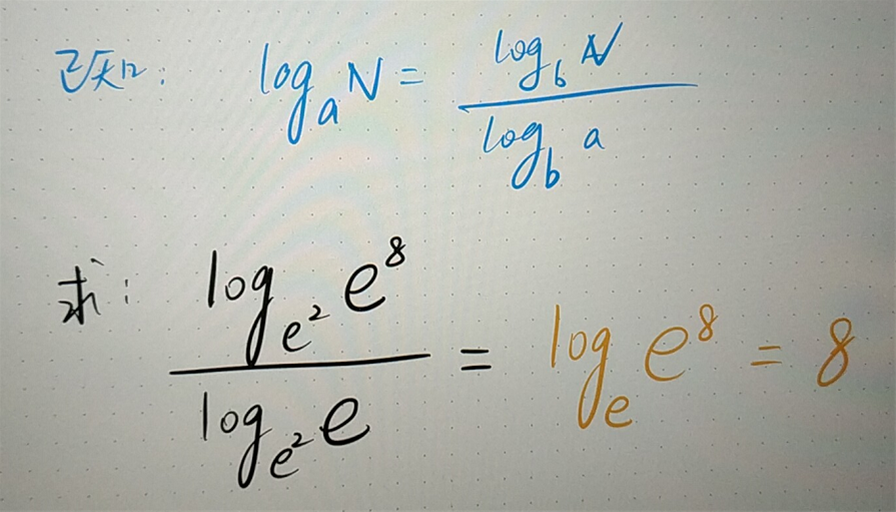 已知: logₐN = log_b N / log_b a
求: log_{e²} e⁸ / log_{e²} e = logₑ e⁸ = 8